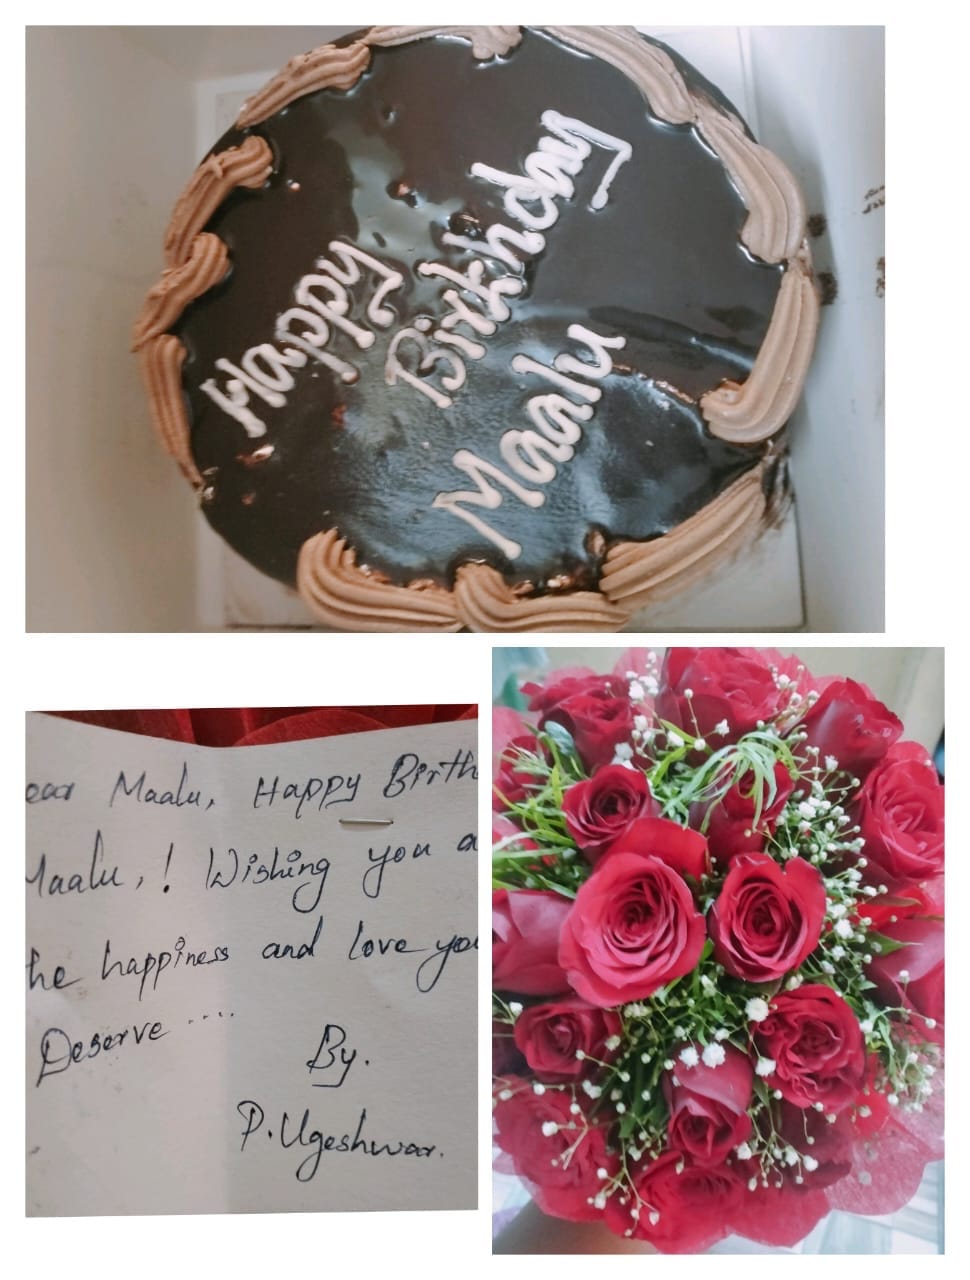 Happy
Birthday
Maalu
ear Maalu, Happy Birth
Maalu, ! Wishing you a
he happiness and love you
Deserve ....
By.
P. Ugeshwar.